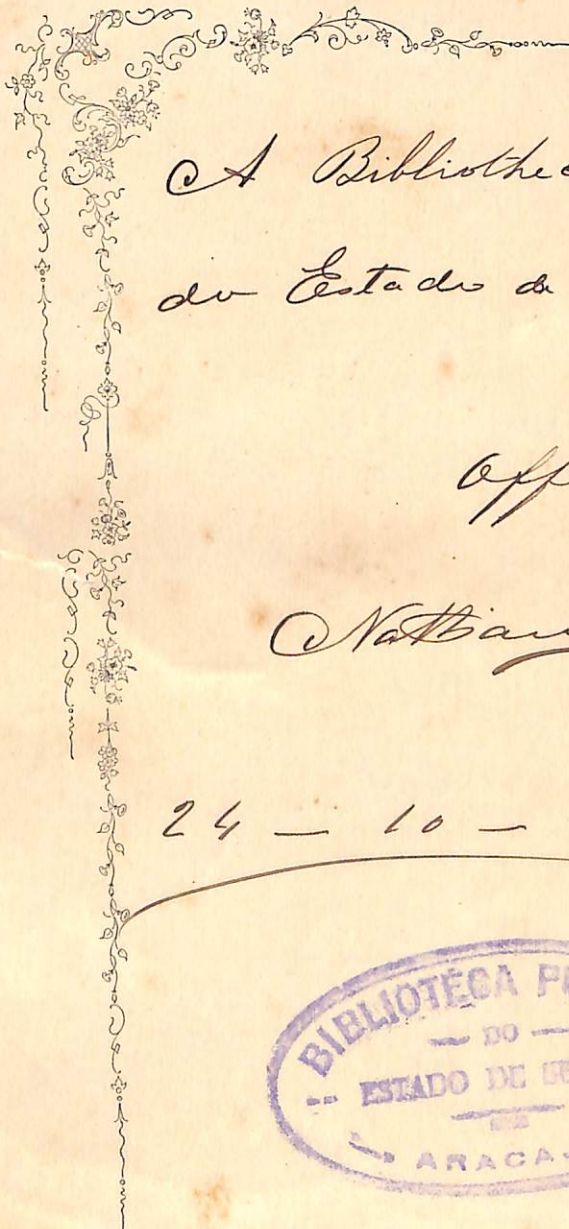 A Bibliothe
do Estado de
Off
24 — 10 —
BIBLIOTECA P
— DO —
ESTADO DE
ARACA